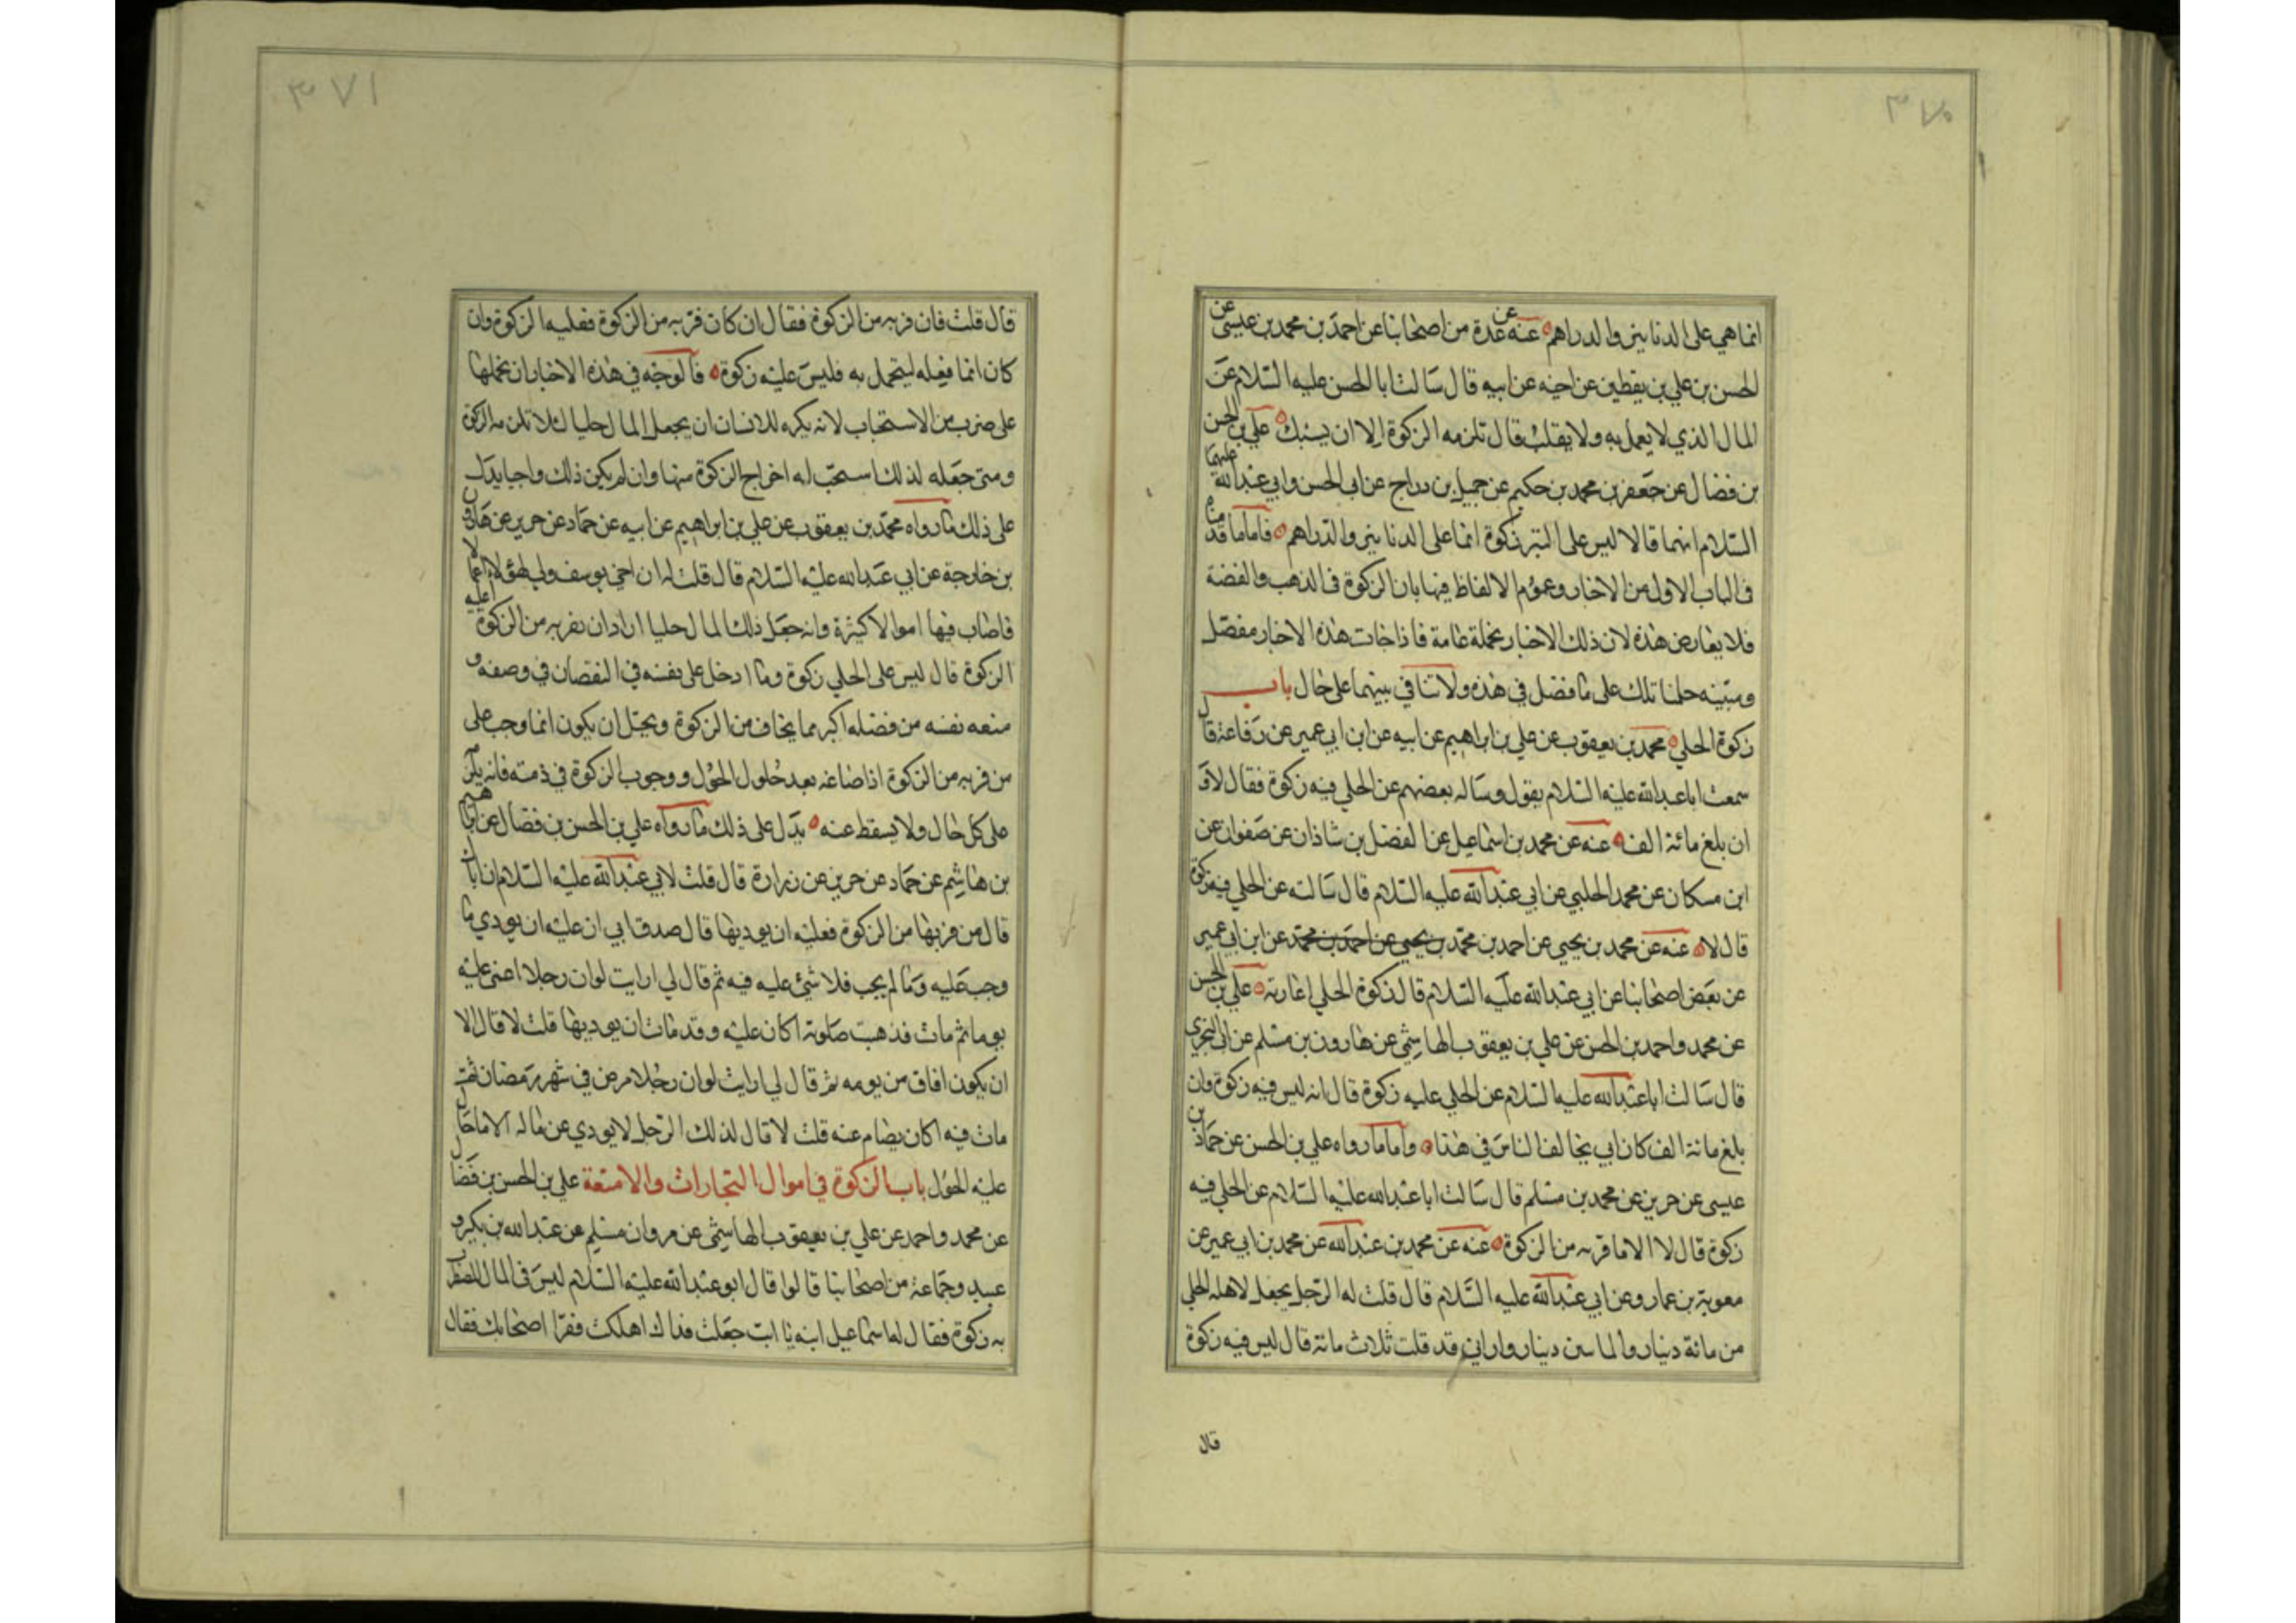 ٣٧٠
انما هي على الدنانير والدراهم عنه عن عدة من اصحابنا عن احمد بن محمد بن عيسى عن
الحسن بن علي بن يقطين عن اخيه عن ابيه قال سالت ابا الحسن عليه السلام عن
المال الذي لا يعمل به ولا يقلب قال تلزمه الزكوة الا ان يسبك علي بن الحسن
بن فضال عن جعفر بن محمد بن حكيم عن جميل بن دراج عن ابي الحسن وابي عبدالله عليهما
السلام انهما قالا ليس على التبر زكوة انما على الدنانير والدراهم فاما ما قدمنا
في الباب الاول من الاخبار وعموم الالفاظ فيها بان الزكوة في الذهب والفضة
فلا يعارض هذه لان ذلك الاخبار مجملة عامة فاذا جات هذه الاخبار مفصل
ومبينه حملنا تلك على ما فصل في هذه ولا تنافي بينهما على حال باب
زكوة الحلي محمد بن يعقوب عن علي بن ابراهيم عن ابيه عن ابن ابي عمير عن رفاعة قال
سمعت ابا عبدالله عليه السلام يقول وساله بعضهم عن الحلي فيه زكوة فقال لا و
ان بلغ مائة الف عنه عن محمد بن اسماعيل عن الفضل بن شاذان عن صفوان عن
ابن مسكان عن محمد الحلبي عن ابي عبدالله عليه السلام قال سالته عن الحلي فيه زكوة
قال لا عنه عن محمد بن يحيى عن احمد بن محمد بن يحيى عن احمد بن محمد عن ابن ابي عمير
عن بعض اصحابنا عن ابي عبدالله عليه السلام قال زكوة الحلي اعارته علي بن الحسن
عن محمد واحمد بن الحسن عن علي بن يعقوب الهاشمي عن هارون بن مسلم عن ابي البختري
قال سالت ابا عبدالله عليه السلام عن الحلي عليه زكوة قال انه ليس فيه زكوة وان
بلغ مائة الف كان ابي يخالف الناس في هذا واما ما رواه علي بن الحسن عن حماد بن
عيسى عن حريز عن محمد بن مسلم قال سالت ابا عبدالله عليه السلام عن الحلي فيه
زكوة قال لا الا ما فر به من الزكوة عنه عن محمد بن عبدالله عن محمد بن ابي عمير عن
معوية بن عمار وعن ابي عبدالله عليه السلام قال قلت له الرجل يجعل لاهله الحلي
من مائة دينار والمأتين دينار واراني قد قلت ثلاث مائة قال ليس فيه زكوة
قال
٣٧١
قال قلت فان فر به من الزكوة فقال ان كان فر به من الزكوة فعليه الزكوة وان
كان انما فعله ليتجمل به فليس عليه زكوة فالوجه في هذه الاخبار ان نحملها
على ضرب من الاستحباب لانه يكره للانسان ان يجعل المال حليا لئلا تلزمه الزكوة
ومتى جعله لذلك استحب له اخراج الزكوة منها وان لم يكن ذلك واجبا يدل
على ذلك ما رواه محمد بن يعقوب عن علي بن ابراهيم عن ابيه عن حماد عن حريز عن هارون
بن خارجة عن ابي عبدالله عليه السلام قال قلت له ان اخي يوسف ولي لهؤلاء اعمالا
فاصاب فيها اموالا كثيرة وانه جعل ذلك المال حليا اراد ان يفر به من الزكوة اعليه
الزكوة قال ليس على الحلي زكوة وما ادخل على نفسه في النقصان في وضعه و
منعه نفسه من فضله اكبر مما يخاف من الزكوة ويحتمل ان يكون انما وجب على
من فر به من الزكوة اذا صاغه بعد حلول الحول ووجوب الزكوة في ذمته فانه يلزمه
على كل حال ولا يسقط عنه يدل على ذلك ما رواه علي بن الحسن بن فضال عن ابراهيم
بن هاشم عن حماد عن حريز عن زرارة قال قلت لابي عبدالله عليه السلام ان اباك
قال من فر بها من الزكوة فعليه ان يوديها قال صدق ابي ان عليه ان يودي ما
وجب عليه وما لم يجب فلا شئ عليه فيه ثم قال لي ارايت لو ان رجلا اغمى عليه
يوما ثم مات فذهبت صلوته اكان عليه وقد مات ان يوديها قلت لا قال الا
ان يكون افاق من يومه ثم قال لي ارايت لو ان رجلا مرض في شهر رمضان ثم
مات فيه اكان يصام عنه قلت لا قال لذلك الرجل لا يودي عن ماله الا ما حال
عليه الحول باب الزكوة في اموال التجارات والامتعة علي بن الحسن بن فضال
عن محمد واحمد عن علي بن يعقوب الهاشمي عن مروان مسلم عن عبدالله بن بكير و
عبيد وجماعة من اصحابنا قالوا قال ابو عبدالله عليه السلام ليس في المال المضطرب
به زكوة فقال له اسماعيل ابنه يا ابت جعلت فداك اهلكت فقرا اصحابك فقال